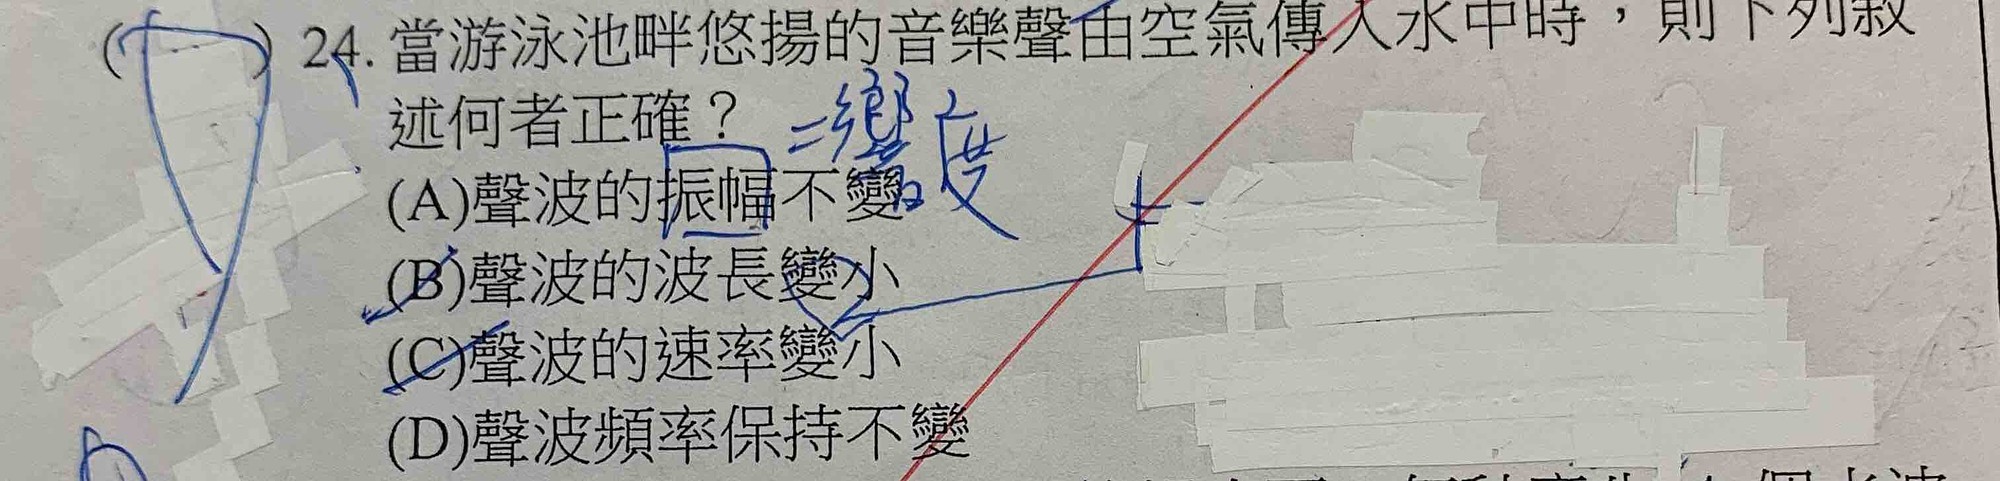 ( ) 24. 當游泳池畔悠揚的音樂聲由空氣傳入水中時，則下列敘
述何者正確？
=響度
(A)聲波的振幅不變
(B)聲波的波長變小
(C)聲波的速率變小
(D)聲波頻率保持不變